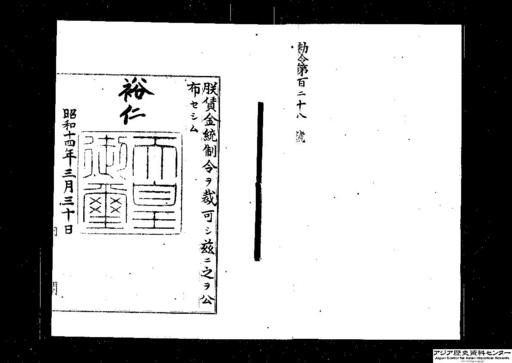 勅令第百二十八號
朕賃金統制令ヲ裁可シ茲ニ之ヲ公
布セシム
裕仁
天皇御璽
昭和十四年三月三十日
内
閣
アジア歴史資料センター
Japan Center for Asian Historical Records